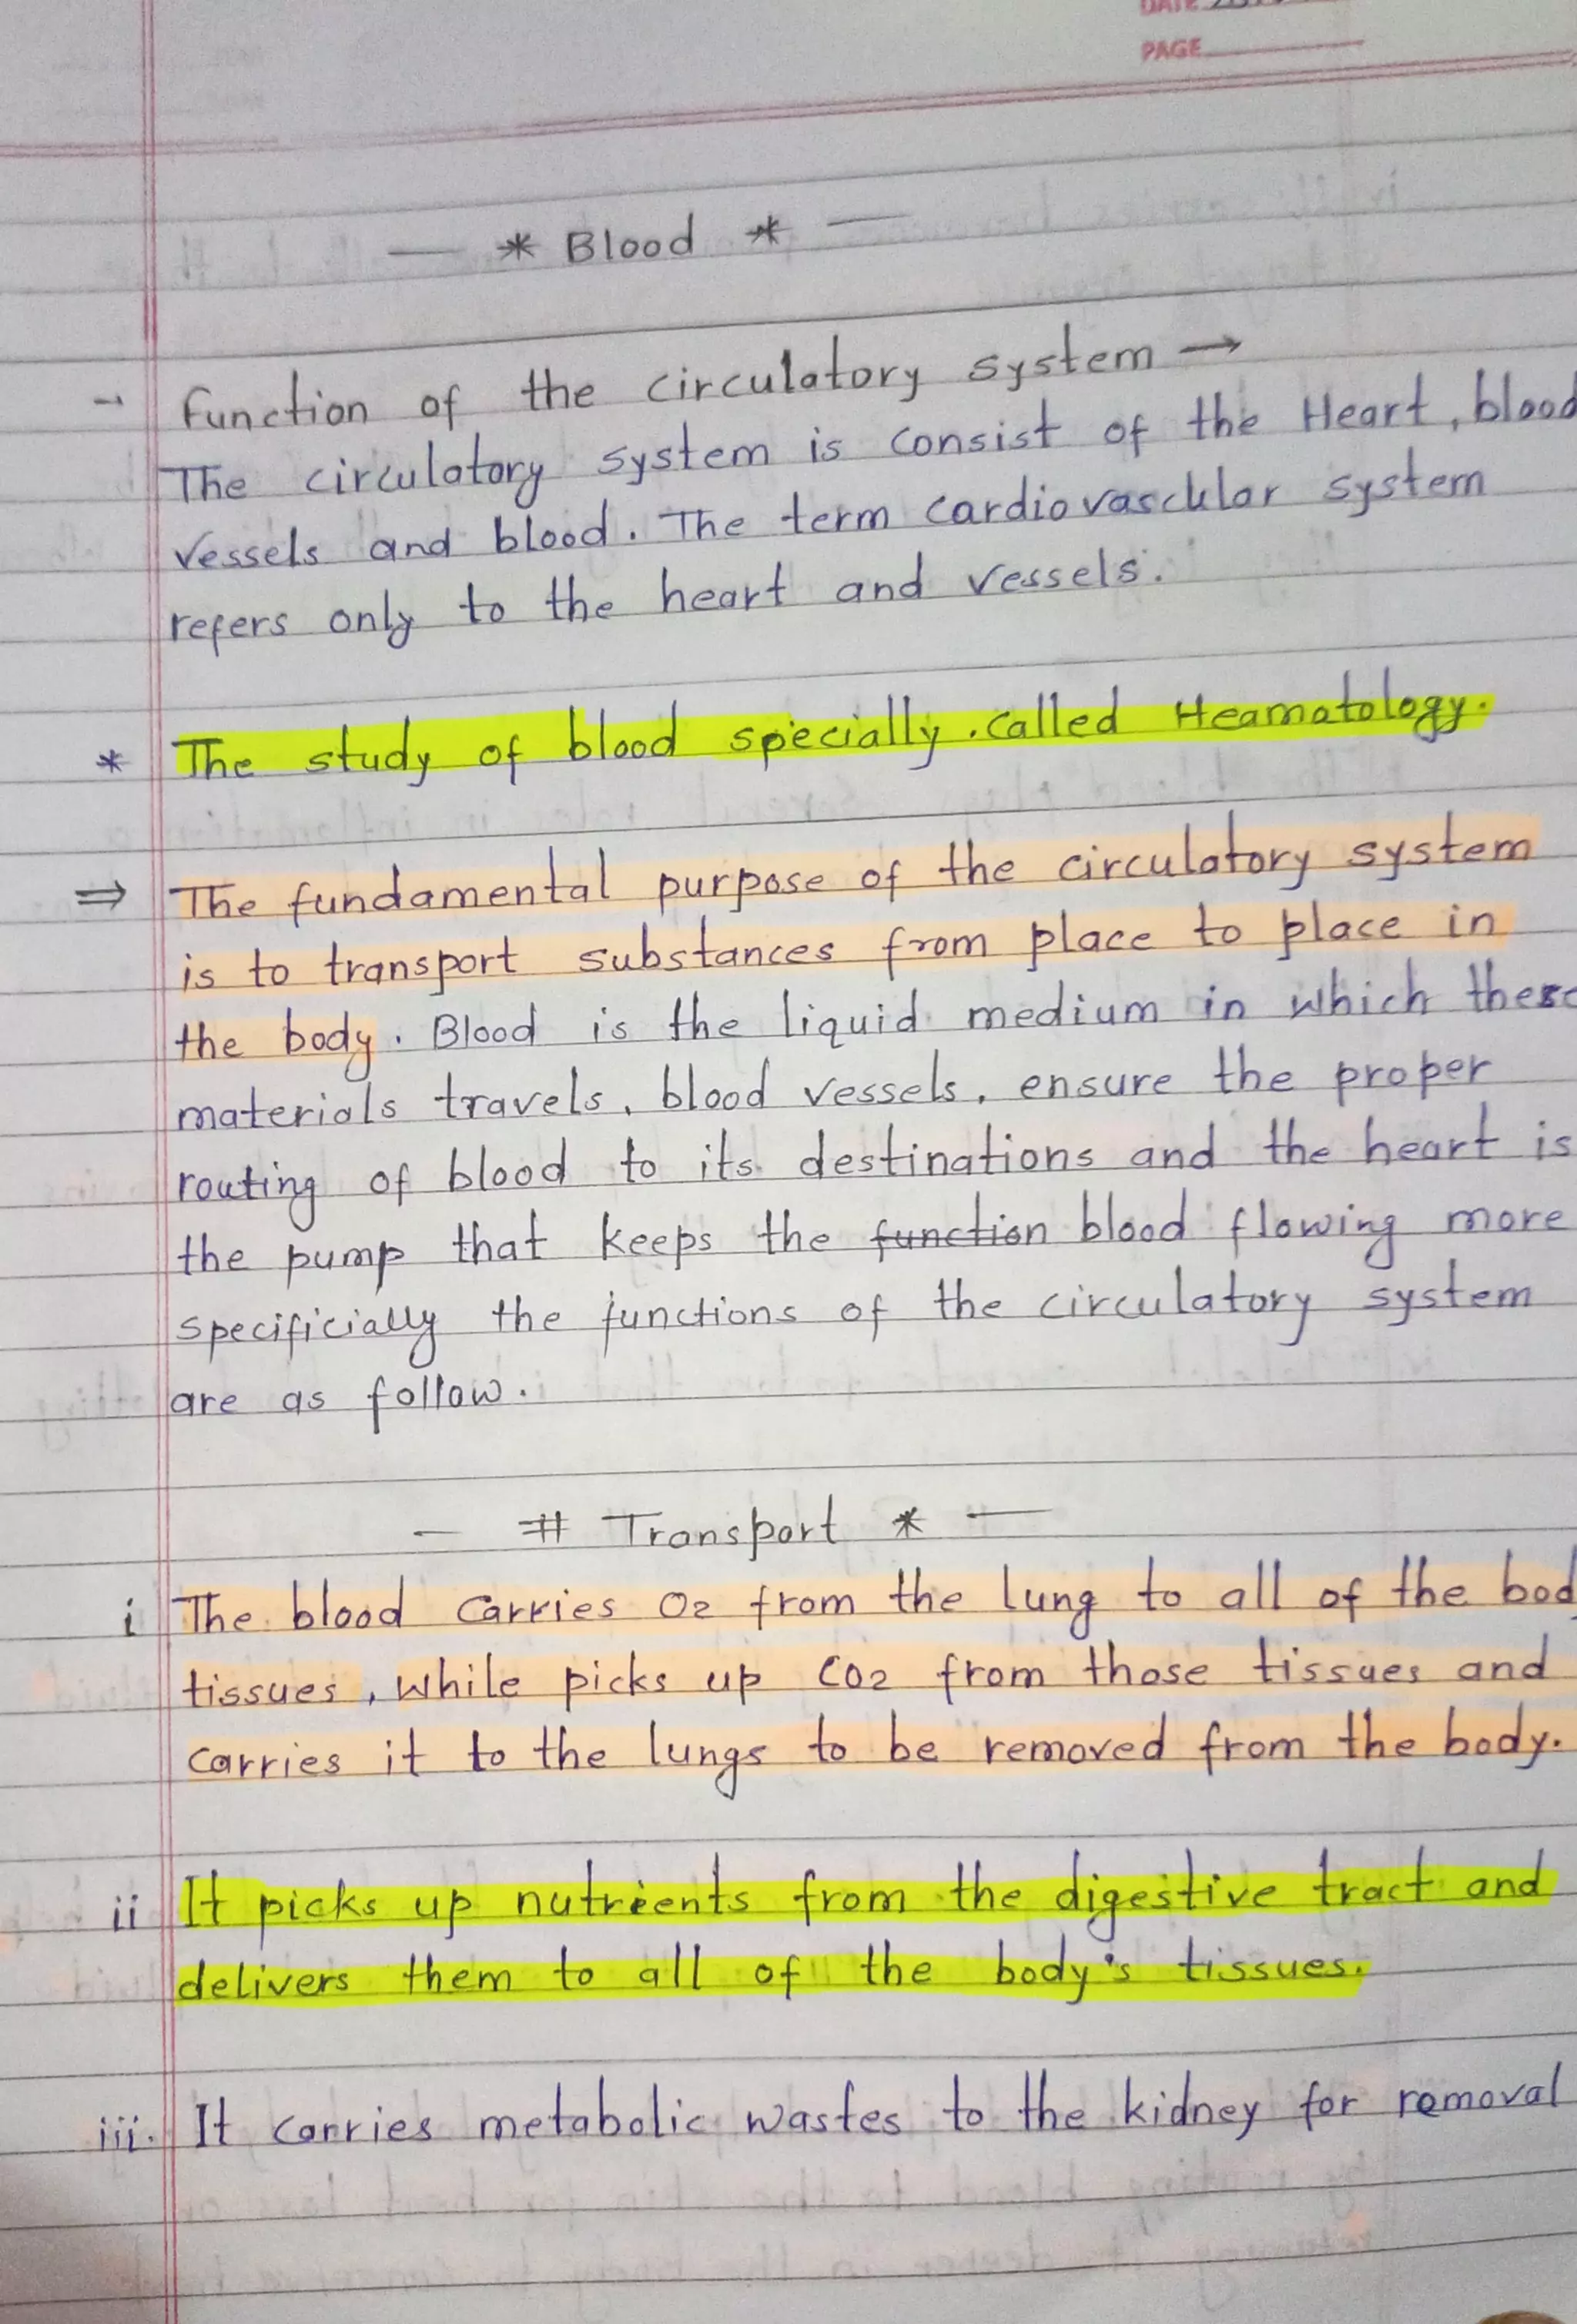 DATE
PAGE
— * Blood * —
- Function of the circulatory system →
The circulatory system is consist of the Heart, blood
vessels and blood. The term cardiovascular system
refers only to the heart and vessels.
* The study of blood specially. called Heamatology.
⇒ The fundamental purpose of the circulatory system
is to transport substances from place to place in
the body. Blood is the liquid medium in which these
materials travels, blood vessels, ensure the proper
routing of blood to its destinations and the heart is
the pump that keeps the function blood flowing more
specificially the functions of the circulatory system
are as follow.
— # Transport * —
i The blood carries O2 from the lung to all of the bod
tissues, while picks up CO2 from those tissues and
carries it to the lungs to be removed from the body.
ii It picks up nutrients from the digestive tract and
delivers them to all of the body's tissues.
iii. It carries metabolic wastes to the kidney for removal